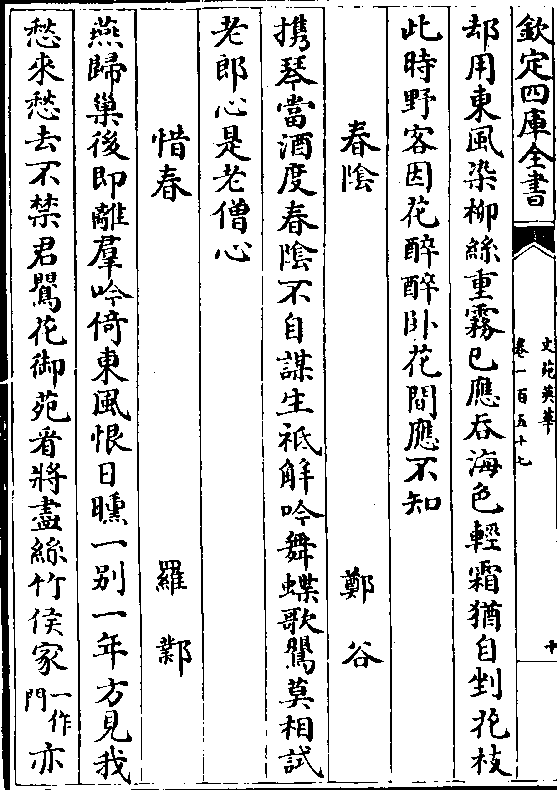 欽定四庫全書
文苑英華
卷一百五十七
十
却用東風染柳絲重霧已應吞海色輕霜猶自剉花枝
此時野客因花醉醉卧花間應不知
春陰 鄭谷
携琴當酒度春陰不自謀生祗解吟舞蝶歌鶯莫相試
老郎心是老僧心
惜春 羅鄴
燕歸巢後即離羣吟倚東風恨日曛一别一年方見我
愁來愁去不禁君鶯花御苑看將盡絲竹侯家一作門亦